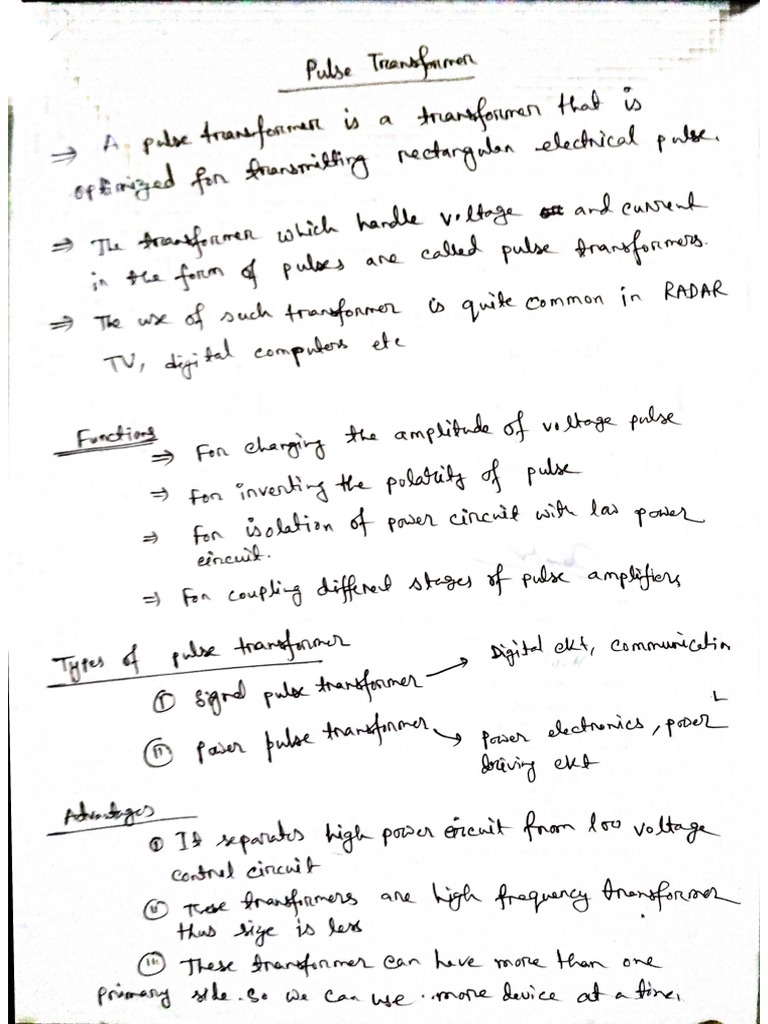 Pulse Transformer
⇒ A pulse transformer is a transformer that is
optimized for transmitting rectangular electrical pulse.
⇒ The transformer which handle voltage and current
in the form of pulses are called pulse transformers.
⇒ The use of such transformer is quite common in RADAR
TV, digital computers etc
Functions
⇒ For changing the amplitude of voltage pulse
⇒ For inverting the polarity of pulse
⇒ For isolation of power circuit with low power
circuit.
⇒ For coupling different stages of pulse amplifiers
Types of pulse transformer
(i) Signal pulse transformer → Digital ckt, communication
(ii) Power pulse transformer → Power electronics, power
driving ckt
Advantages
(i) It separates high power circuit from low voltage
control circuit
(ii) These transformers are high frequency transformer
thus size is less
(iii) These transformer can have more than one
primary side. So we can use more device at a time.